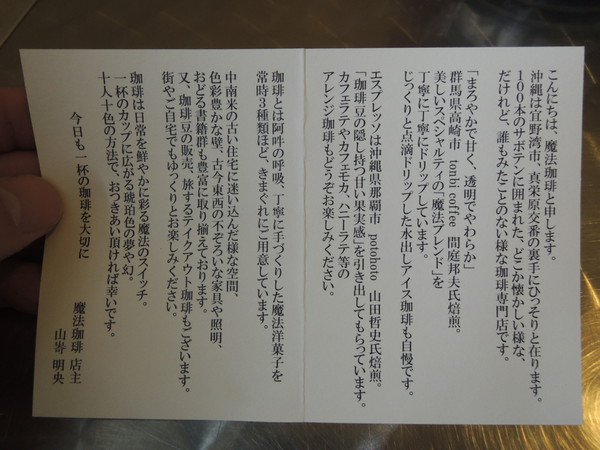 こんにちは、魔法珈琲と申します。
沖縄は宜野湾市、真栄原交番の裏手にひっそりと在ります。
100本のサボテンに囲まれた、どこか懐かしい様な、
だけれど、誰もみたことのない様な珈琲専門店です。
「まろやかで甘く、透明でやわらか」
群馬県高崎市 tonbi coffee 間庭邦夫氏焙煎。
美しいスペシャルティの「魔法ブレンド」を
丁寧に丁寧にドリップしています。
じっくりと点滴ドリップした水出しアイス珈琲も自慢です。
エスプレッソは沖縄県那覇市 potohoto 山田哲史氏焙煎。
「珈琲豆の隠し持つ甘い果実感」を引き出してもらっています。
カフェラテやカフェモカ、ハニーラテ等の
アレンジ珈琲もどうぞお楽しみください。
珈琲とは阿吽の呼吸、丁寧に手づくりした魔法洋菓子を
常時3種類ほど、きまぐれにご用意しています。
中南米の古い住宅に迷い込んだ様な空間、
色彩豊かな壁、古今東西の不ぞろいな家具や照明、
おどる書籍群も豊富に取り揃えております。
又、珈琲豆の販売、旅するテイクアウト珈琲もございます。
街やご自宅でもゆっくりとお楽しみください。
珈琲は日常を鮮やかに彩る魔法のスイッチ。
一杯のカップに広がる琥珀色の夢や幻。
十人十色の方法で、おつきあい頂ければ幸いです。
今日も一杯の珈琲を大切に
魔法珈琲 店主
山嵜 明央